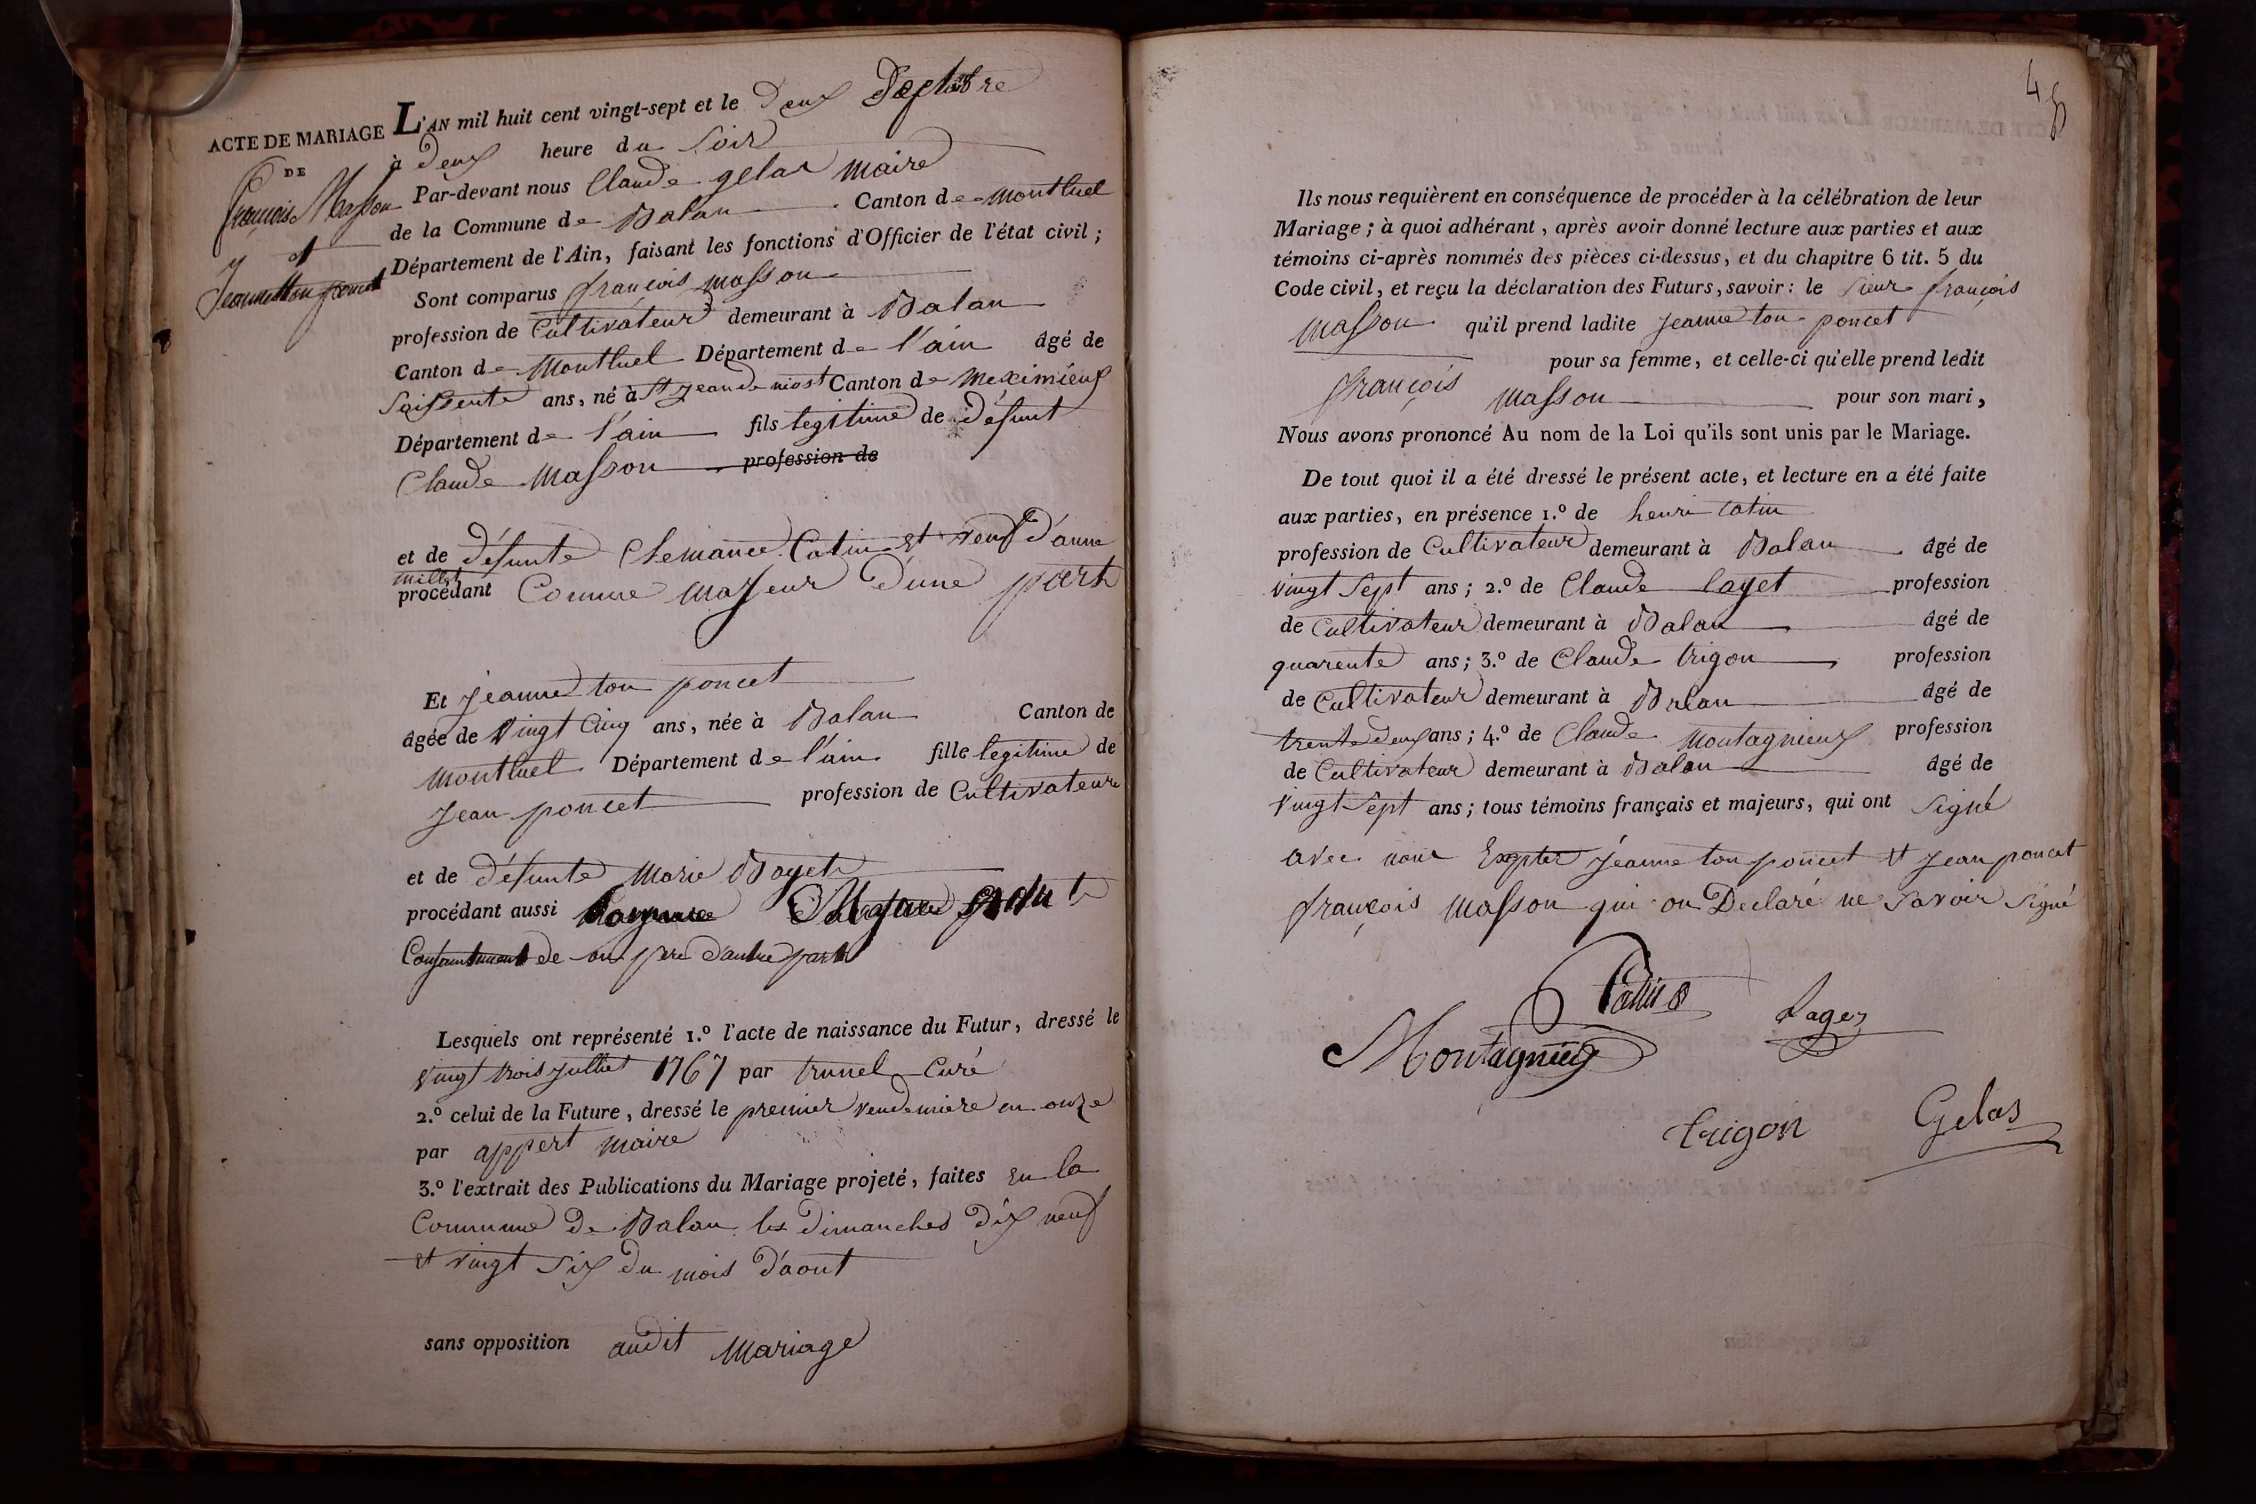 ACTE DE MARIAGE
DE
françois Masson
et
Jeannetton poncet
L'AN mil huit cent vingt-sept et le Deux Septembre
à Deux heure du Soir
Par-devant nous Claude gelas maire
de la Commune de Balan Canton de montluel
Département de l'Ain, faisant les fonctions d'Officier de l'état civil ;
Sont comparus françois masson
profession de Cultivateur demeurant à Balan
Canton de Montluel Département de l'ain âgé de
Soissente ans, né à St jean de niost Canton de meximieux
Département de l'ain fils legitime de défunt
Claude Masson profession de
et de défunte Clemance Catin et veuf d'anne
millet
procédant Comme majeur D'une part
Et jeanne ton poncet
âgée de vingt Cinq ans, née à Balan Canton de
montluel Département de l'ain fille legitime de
jean poncet profession de Cultivateur
et de défunte Marie
procédant aussi
de son père d'autre part
Lesquels ont représenté 1.º l'acte de naissance du Futur, dressé le
vingt trois jullet 1767 par trunel Curé
2.º celui de la Future, dressé le premier vendemiere an onze
par appert maire
3.º l'extrait des Publications du Mariage projeté, faites En la
Commune De Balan les Dimanches Dix neuf
et vingt Six du mois D'aout
sans opposition audit mariage
48
Ils nous requièrent en conséquence de procéder à la célébration de leur
Mariage ; à quoi adhérant, après avoir donné lecture aux parties et aux
témoins ci-après nommés des pièces ci-dessus, et du chapitre 6 tit. 5 du
Code civil, et reçu la déclaration des Futurs, savoir : le Sieur françois
masson qu'il prend ladite jeanne ton poncet
pour sa femme, et celle-ci qu'elle prend ledit
françois masson pour son mari,
Nous avons prononcé Au nom de la Loi qu'ils sont unis par le Mariage.
De tout quoi il a été dressé le présent acte, et lecture en a été faite
aux parties, en présence 1.º de henri Catin
profession de Cultivateur demeurant à Balan âgé de
vingt Sept ans ; 2.º de Claude Laget profession
de Cultivateur demeurant à Balan âgé de
quarente ans ; 3.º de Claude trigon profession
de Cultivateur demeurant à Balan âgé de
trente deux ans ; 4.º de Claude montagnieux profession
de Cultivateur demeurant à Balan âgé de
vingt Sept ans ; tous témoins français et majeurs, qui ont Signé
avec nous Exepter jeanne ton poncet et jean poncet
françois masson qui on Declaré ne Savoir Signé
Lages
Montagnieux
trigon
Gelas